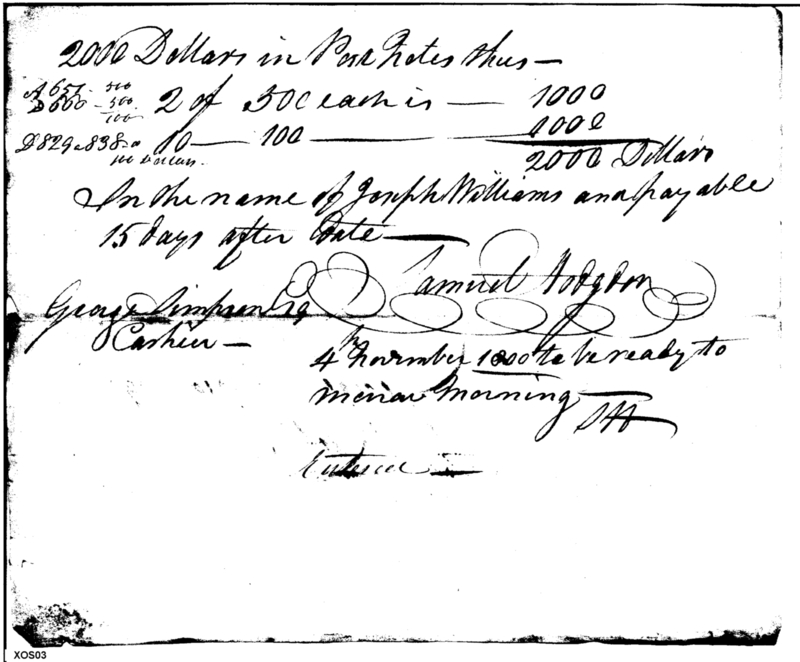 2000 Dollars in Post Notes thus —
A 657 - 500
D 660 - 500 2 of 500 each is — 1000
100
D 829 a 838 - a 10 — 100 — 1000
100 Dollars. 2000 Dollars
In the name of Joseph Williams and payable
15 days after Date —
Samuel Hodgdon
George Simpson Esq
Cashier —
4th November 1800 to be ready to
morrow Morning —
SH
Entered —
XOS03